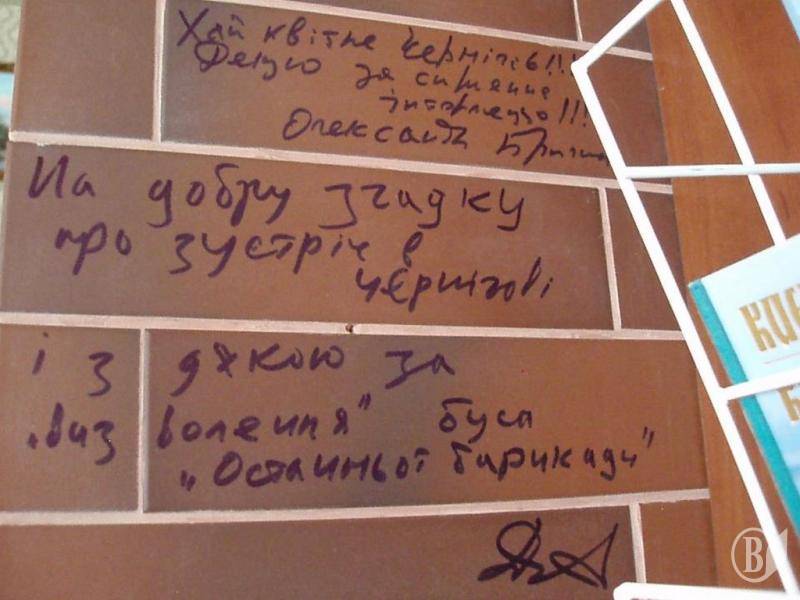 Хай квітне Чернігів!!!
Дякую за сирене
інтермеццо!!!
Олександр
На добру згадку
про зустріч в
Чернігові
і з дякою за
„визволення" буса
„Останньої барикади"
В